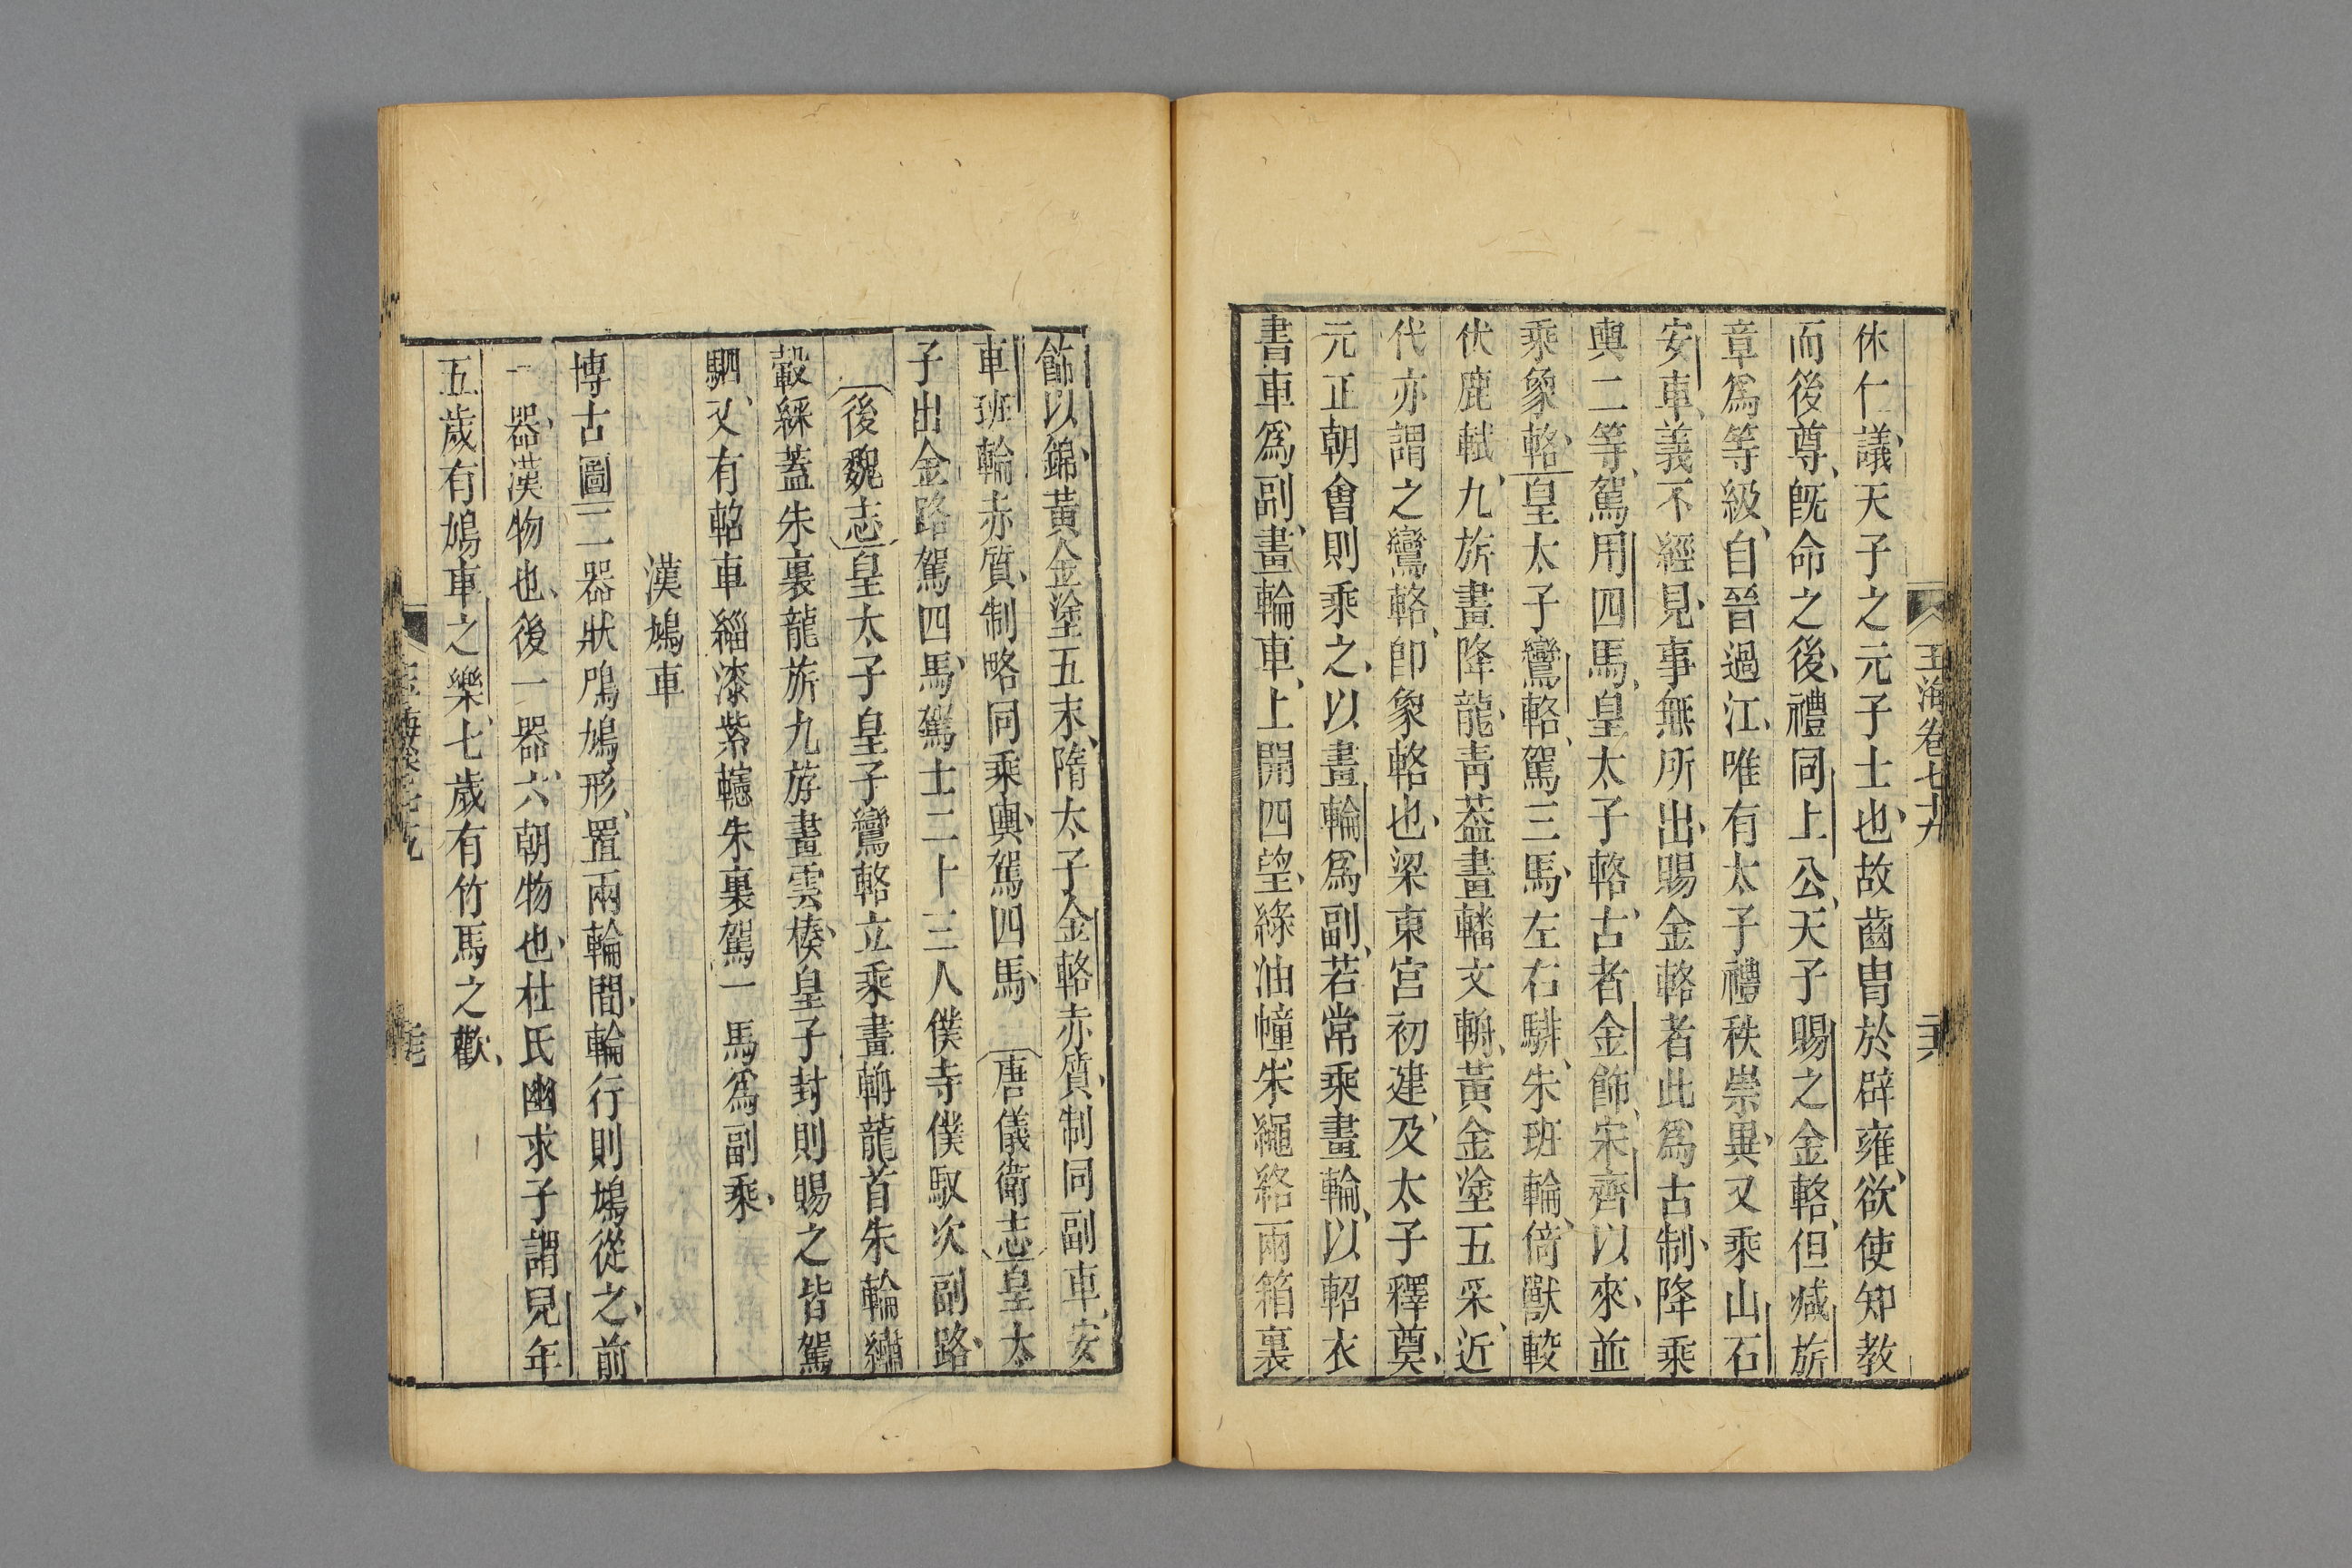 玉海卷七十九
二十六
休仁議天子之元子士也故齒胄於辟雍欲使知教
而後尊既命之後禮同上公天子賜之金輅但減旂
章爲等級自晉過江唯有太子禮秩崇異又乘山石
安車義不經見事無所出賜金輅者此爲古制降乘
輿二等駕用四馬皇太子輅古者金飾宋齊以來並
乘象輅皇太子鸞輅駕三馬左右騑朱班輪倚獸較
伏鹿軾九旂畫降龍青葢畫轓文輈黃金塗五采近
代亦謂之鸞輅卽象輅也梁東宮初建及太子釋奠
元正朝會則乘之以畫輪爲副若常乘畫輪以軺衣
書車爲副畫輪車上開四望綠油幢朱繩絡兩箱裏
飾以錦黃金塗五末隋太子金輅赤質制同副車安
車班輪赤質制略同乘輿駕四馬 唐儀衞志皇太
子出金路駕四馬駕士二十三人僕寺僕馭次副路
後魏志皇太子皇子鸞輅立乘畫輈龍首朱輪繡
轂綵蓋朱裏龍旂九斿畫雲榛皇子封則賜之皆駕
駟又有軺車緇漆紫幰朱裏駕一馬爲副乘
漢鳩車
博古圖二器狀鳲鳩形置兩輪間輪行則鳩從之前
一器漢物也後一器六朝物也杜氏幽求子謂兒年
五歲有鳩車之樂七歲有竹馬之歡